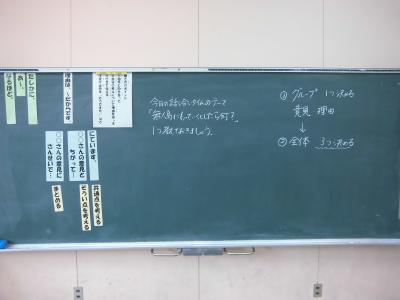 今日の話し合いタイムのテーマ
「無人島にもっていくとしたら何？」
1つ考えておきましょう。
① グループ 1つ決める
意見 理由
↓
② 全体 3つ決める
理由は、〜だからです。
たしかに、
あー、
なるほど、
にています。
○○さんの意見と
ちがって…
○○さんの意見に
さんせいで…
共通点を考える
そういう点を考える
まとめる